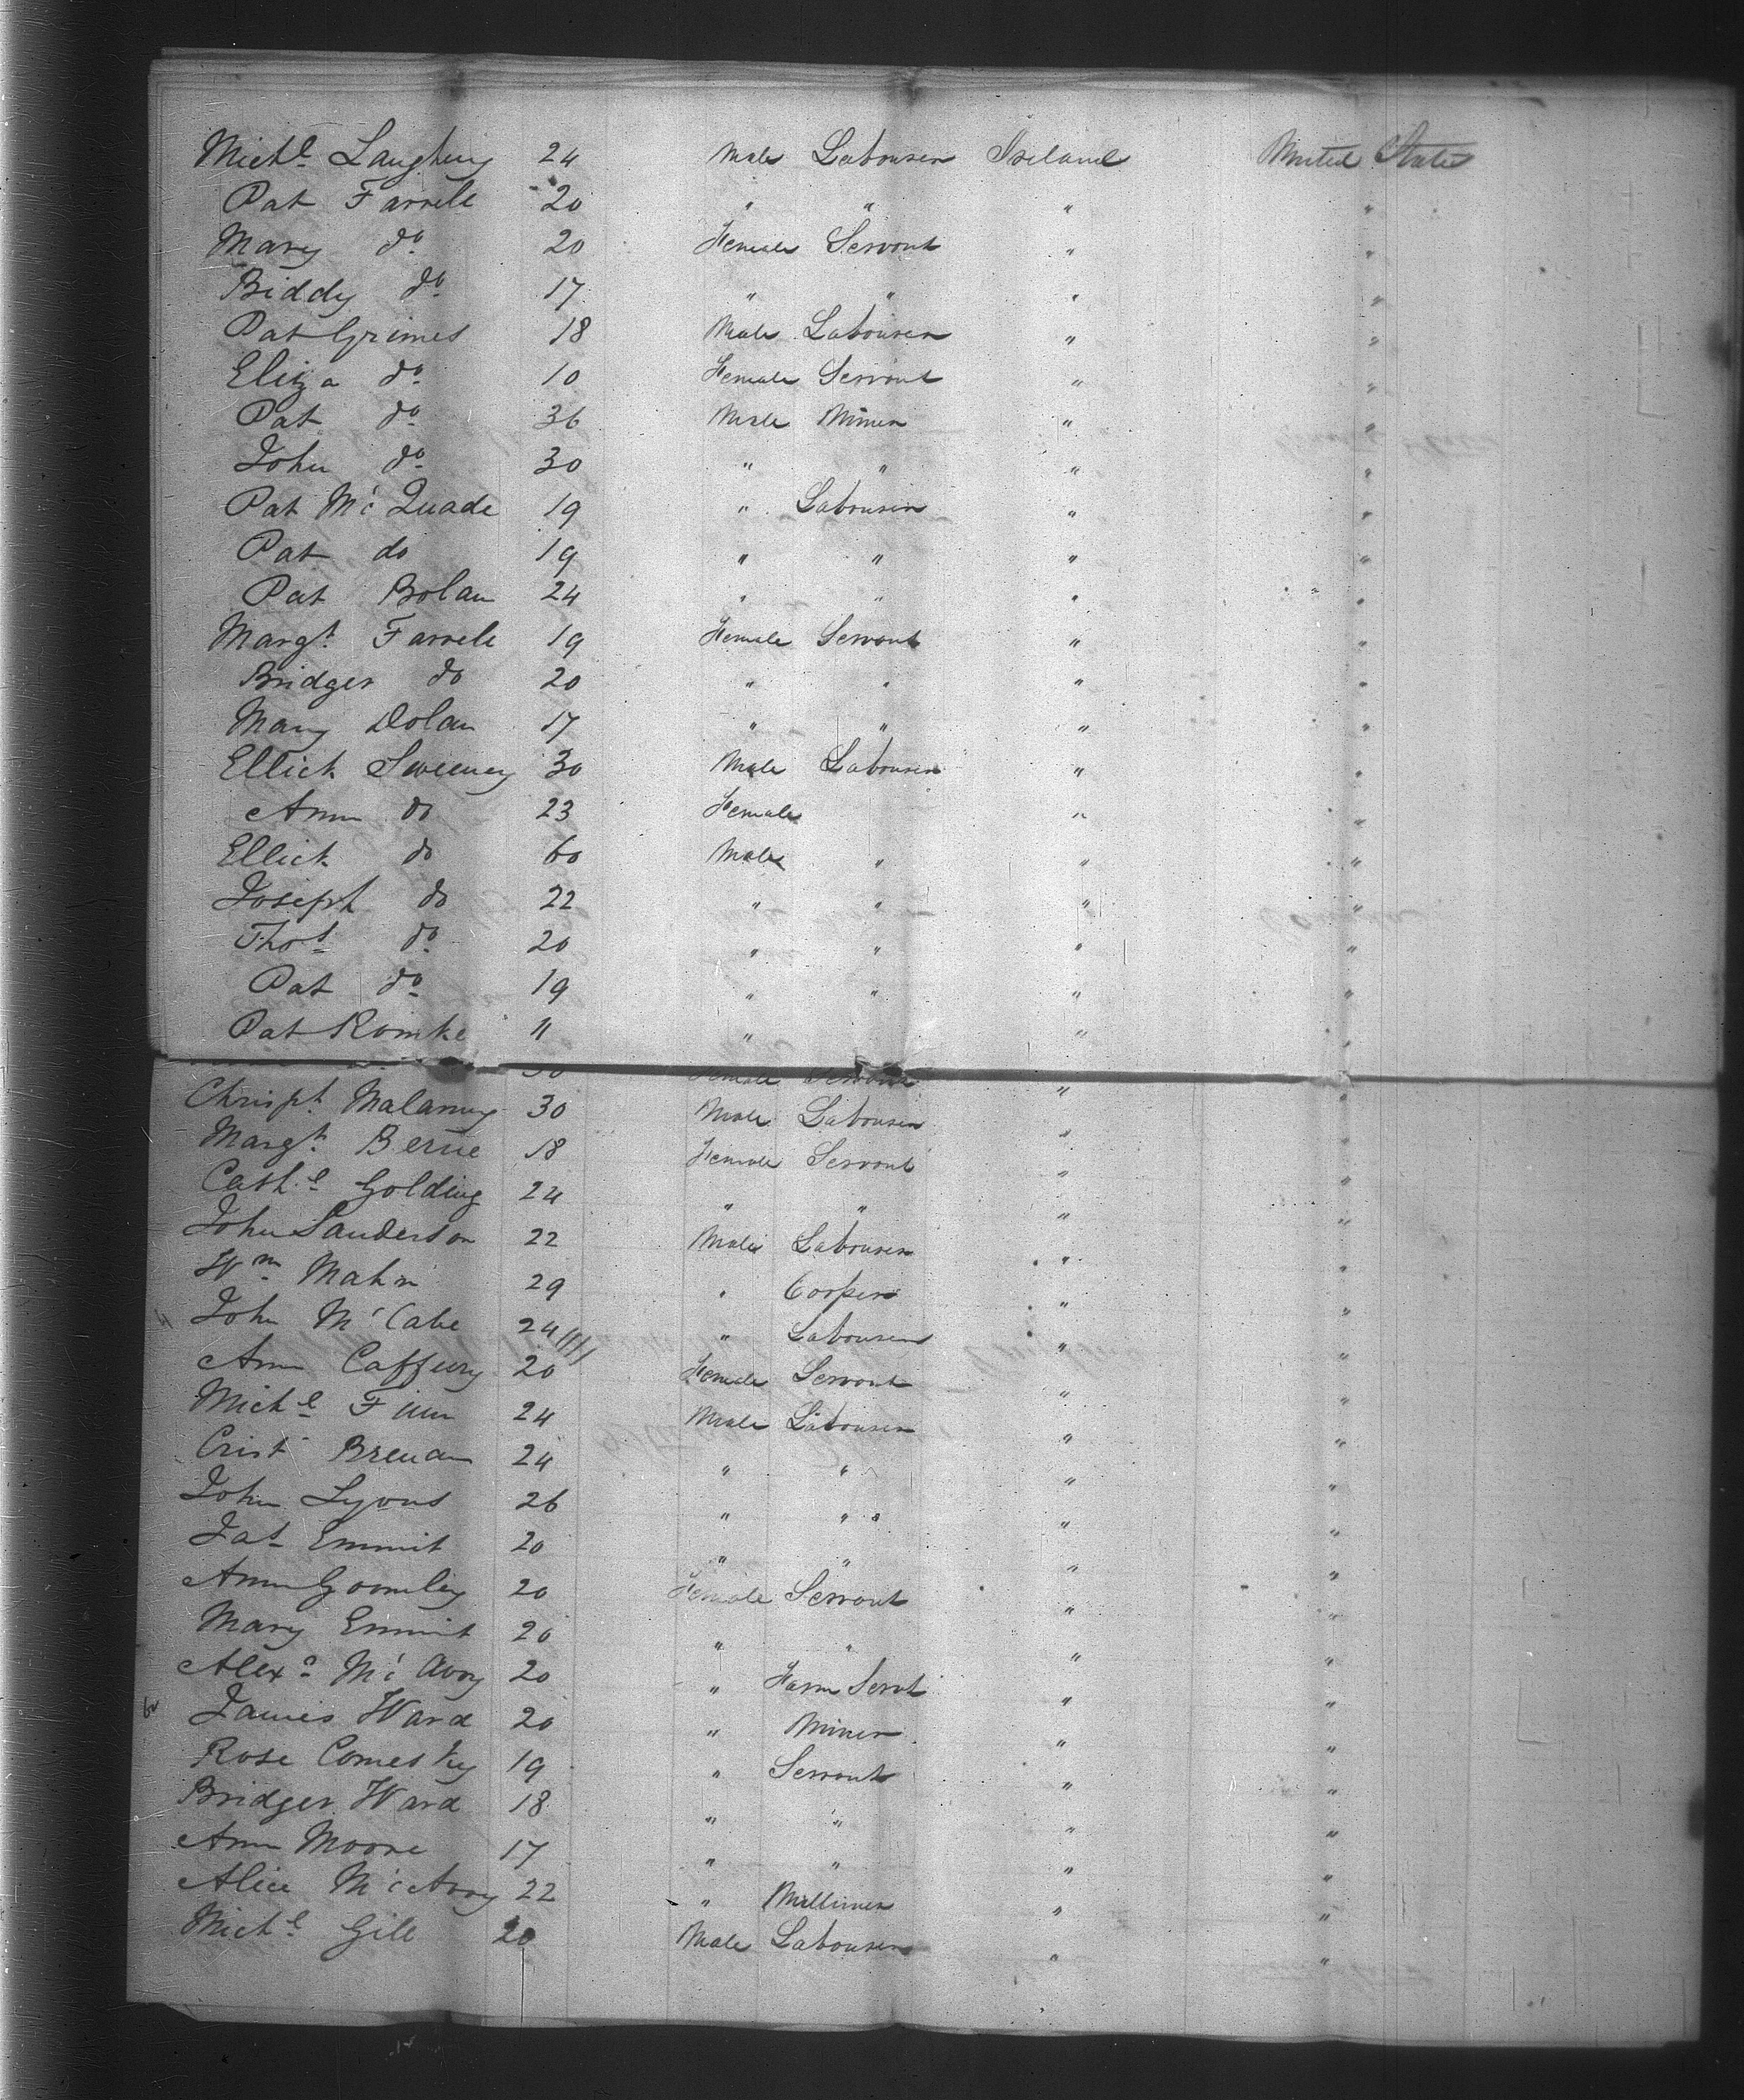 Mich.l Laughery 24 Male Labourer Ireland United States
Pat Farrell 20 " " " "
Mary do 20 Female Servant " "
Biddy do 17 " " " "
Pat Grimes 18 Male Labourer " "
Eliza do 10 Female Servant " "
Pat do 36 Male Miner " "
John do 30 " " " "
Pat McQuade 19 " Labourer " "
Pat do 19 " " " "
Pat Bolan 24 " " " "
Margt Farrell 19 Female Servant " "
Bridget do 20 " " " "
Mary Dolan 17 " " " "
Ellick Sweeney 30 Male Labourer " "
Ann do 23 Female " "
Ellick do 60 Male " " "
Joseph do 22 " " " "
Thos do 20 " " " "
Pat do 19 " " " "
Pat 11 " " "
30 Female Servant "
Chrispt. 30 Male Labourer " "
Margt Berne 18 Female Servant " "
Cath.e Golding 24 " " " "
John Sanderson 22 Male Labourer " "
Wm Mahn 29 " " "
John McCabe 24 " Labourer " "
Ann Caffery 20 Female Servant " "
Mich.l Finn 24 Male Labourer " "
Crist Brenan 24 " " " "
John Lyons 26 " " " "
Jas Emmit 20 " " " "
Ann Goomley 20 Female Servant " "
Mary Emmit 20 " " " "
Alexr McAvoy 20 " Farm Servt " "
James Ward 20 " Miner " "
Rose Comeskey 19 " Servant " "
Bridget Ward 18 " " " "
Ann Moore 17 " " " "
Alice McAvoy 22 " Milliner " "
Mich.l Gill 20 Male Labourer " "